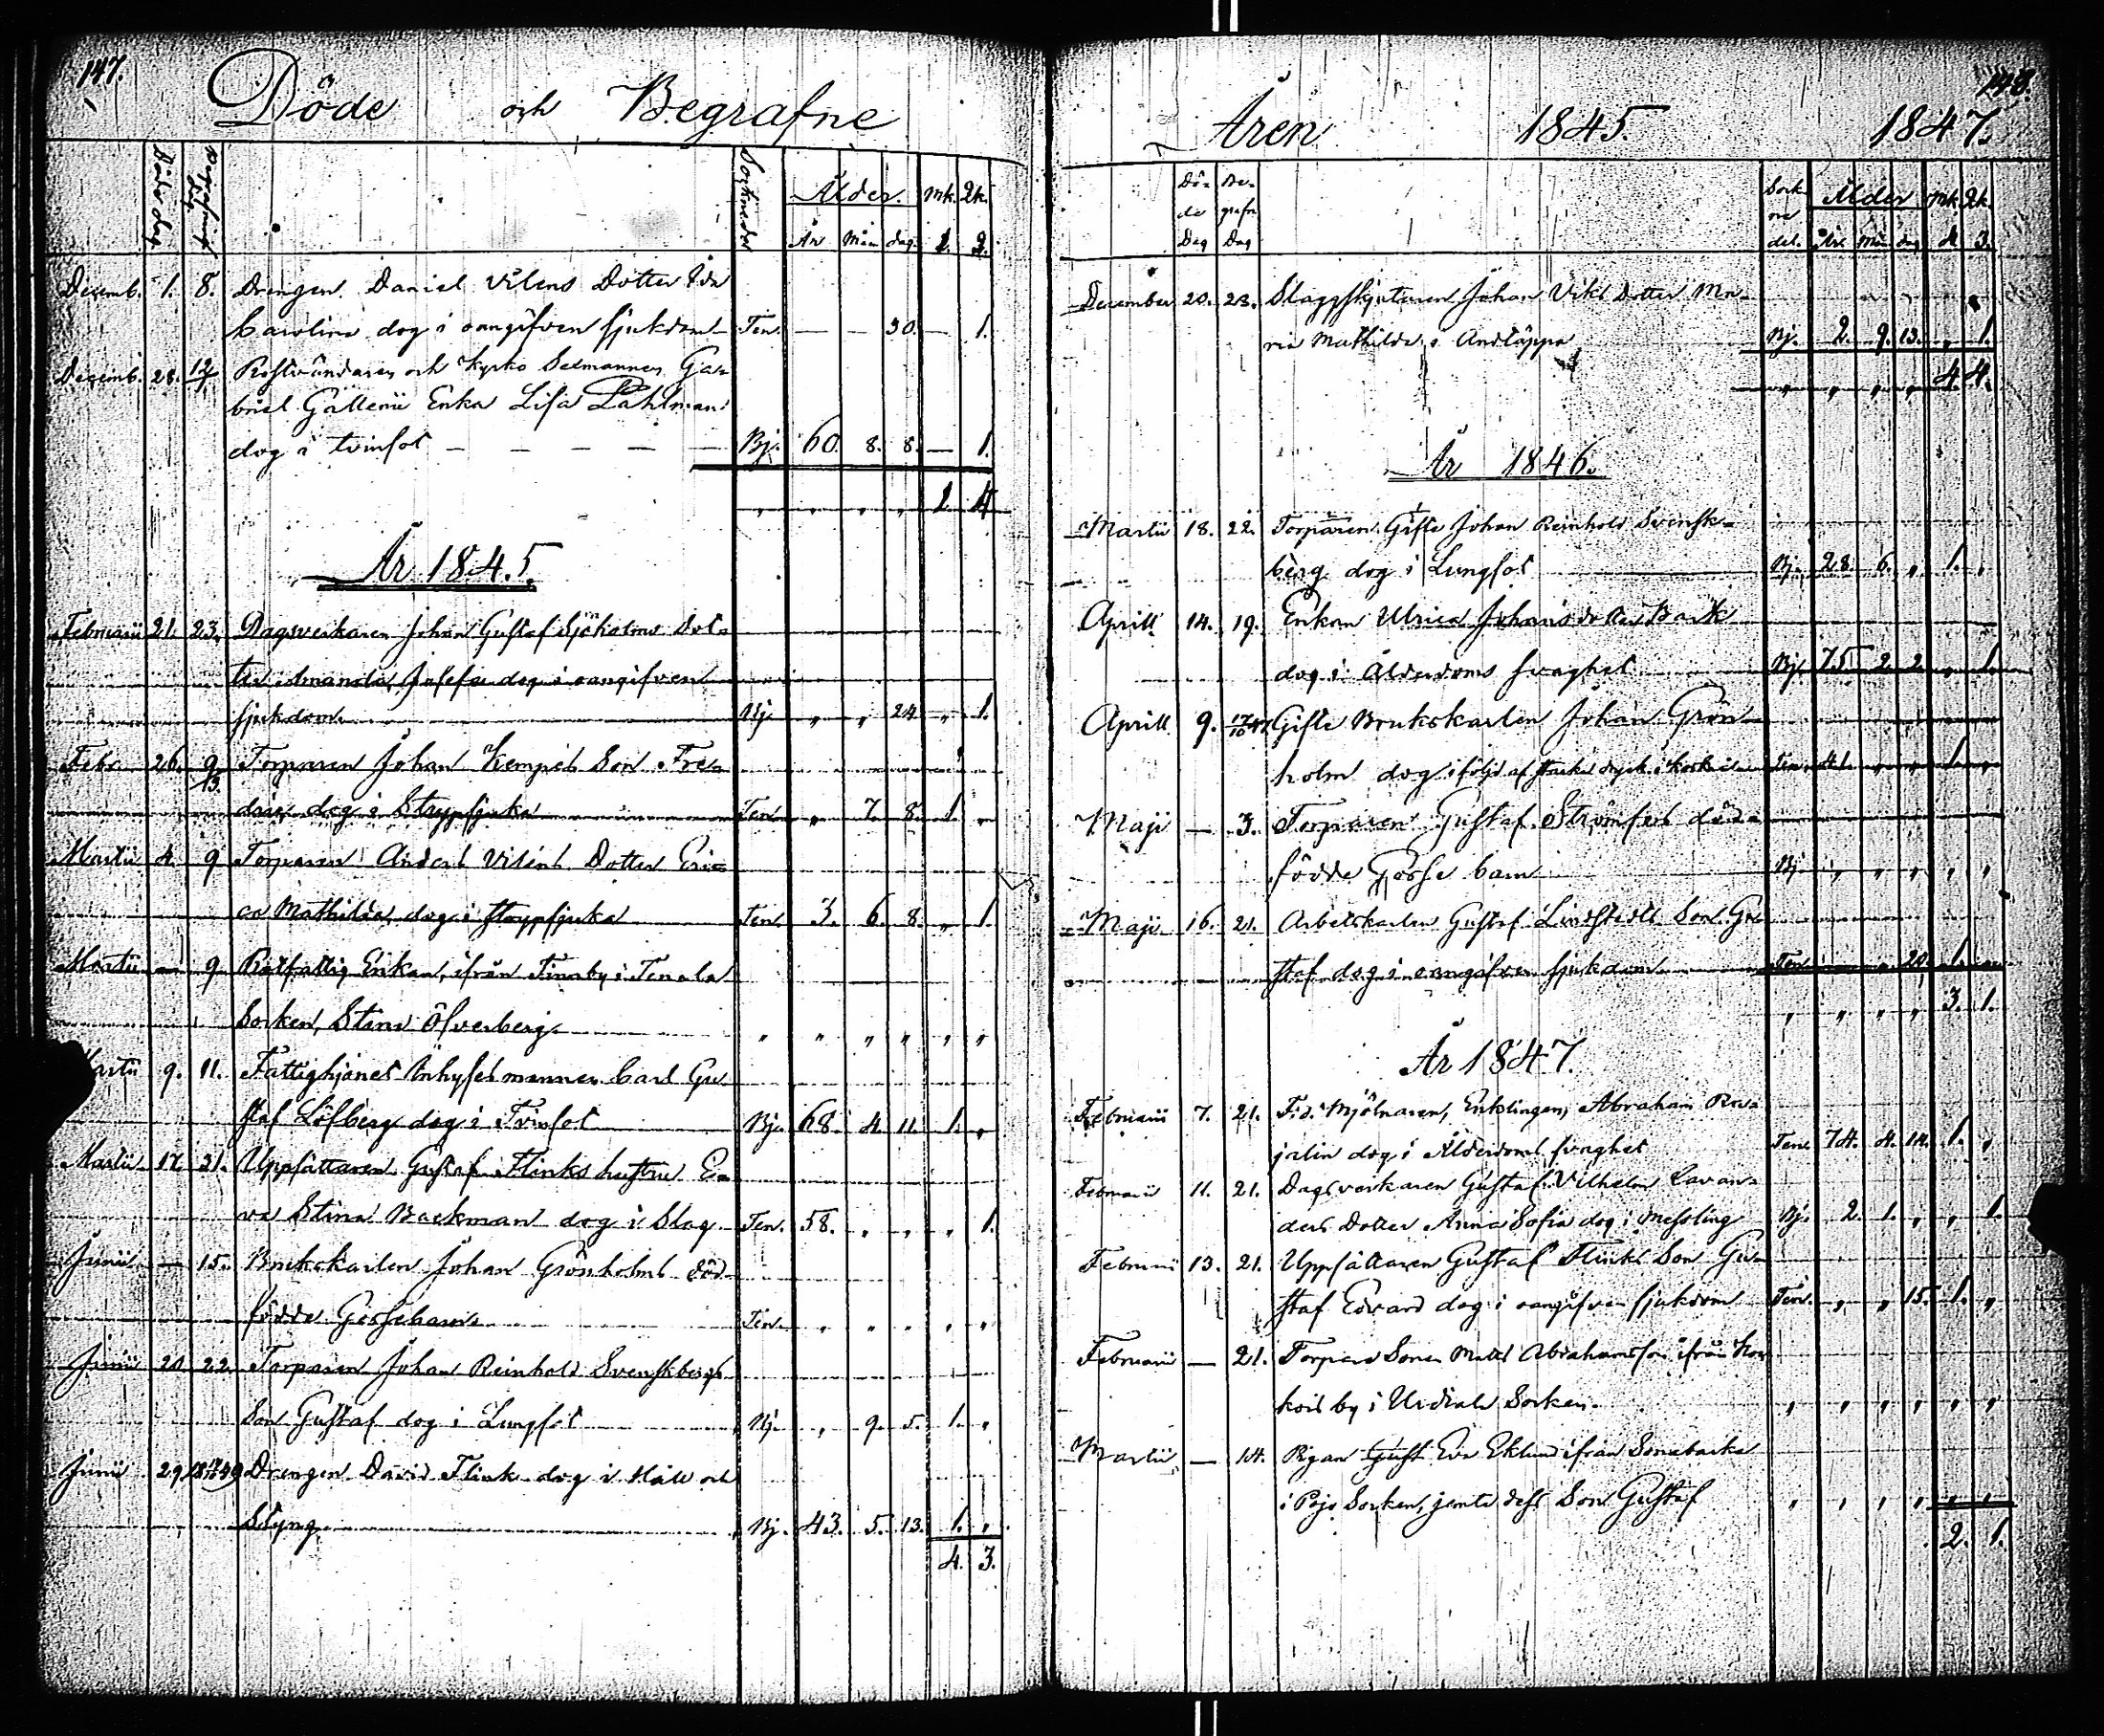 147.
Döde och Begrafne
Döde dag Begrafnings dag Socknedel Ålder. Mk. Qk.
År Mån dag 1. 3.
Decemb. 1. 8. Drengen Daniel Viléns Dotter Ida
Carolina dog i oangifven sjukdom Ten. — — 30. — 1.
Decemb. 28. Rostvändaren och Kyrko Sexmannen Ga-
briel Gallenii Enka Lisa Pahlman
dog i tvinsot — — — — — Bj. 60. 8. 8. — 1.
" " " " 1 4
År 1845.
Februarii 21. 23. Dagsverkaren Johan Gustaf Sjöholms Dot-
ter Amanda Josefa dog i oangifven
sjukdom Bj. " " 24 " 1.
Febr. 26. 9/3. Torparen Johan Kempes Son Fre-
dric dog i Strypsjuka Ten. " 7. 8. 1. "
Martii 4. 9 Torparen Anders Viléns Dotter Eri-
ca Mathilda dog i strypsjuka Ten. 3. 6. 8. " 1.
Martii — 9. Rotfattig Enkan, ifrån Finnby i Tenala
Socken, Stina Öfverberg " " " " " "
Martii 9. 11. Fattighjonet Inhyses mannen Carl Gu-
staf Löfberg dog i Tvinsot Bj. 68. 4. 11. 1. "
Martii 17. 21. Uppsättaren Gustaf Flinks hustru E-
va Stina Backman dog i Slag Ten. 58. " " " 1.
Junii — 15. Brukskarlen Johan Grönholms död-
födde Gossebarn Ten. " " " " "
Junii 20 22 Torparen Johan Reinhold Svenskbergs
Son Gustaf dog i Lungsot Bj. " 9. 5. 1. "
Junii 29 Drengen David Flink dog i Håll och
Styng Bj. 43. 5. 13. 1. "
4. 3.
148.
Åren 1845. 1847.
Dö- Be- Sock- Ålder Mk. Qk.
de grafn ne
Dag Dag del. År Mån dag 4. 3.
December 20. 23. Slaggskjutaren Johan Viks Dotter Ma-
ria Mathilda i Andtäppa Bj. 2. 9. 13. " 1.
" " " " 4. 4.
År 1846.
Martii 18. 22. Torparen Gifte Johan Reinhold Svensk-
berg dog i Lungsot Bj. 28. 6. " 1. "
Aprill 14. 19. Enkan Ulrica Johansdotter Bark
dog i Ålderdoms svaghet Bj. 75 2. 2. " 1.
Aprill 9. Gifte Brukskarlen Johan Grön-
holm dog i följd af starka dryck Ten. 41. " " 1. "
Maji — 3. Torparen Gustaf Strömfors död-
födde Gosse barn Bj. " " " " "
Maji 16. 21. Arbetskarlen Gustaf Lindstedts Son Gu-
staf dog i oangifven sjukdom Ten. " " 20. 1. "
" " " " 3. 1.
År 1847.
Februarii 7. 21. F.d. Mjölnaren, Enklingen, Abraham Ra-
jalin dog i Ålderdoms svaghet Ten. 74. 4. 14. 1. "
Februarii 11. 21. Dagsverkaren Gustaf Vilhelm Lavan-
ders Dotter Anna Sofia dog i Messling Bj. 2. 1. " " 1.
Februarii 13. 21. Uppsättaren Gustaf Flinks Son Gu-
staf Edvard dog i oangifven sjukdom Ten. " " 15. 1. "
Februarii — 21. Torpare Sonen Matts Abrahamsson ifrån
by i Urdiala Socken. " " " " " "
Martii — 14. Pigan Gust Eva Eklund ifrån Sonabacka
i Pojo Socken, jemte dess Son Gustaf " " " " " "
2. 1.